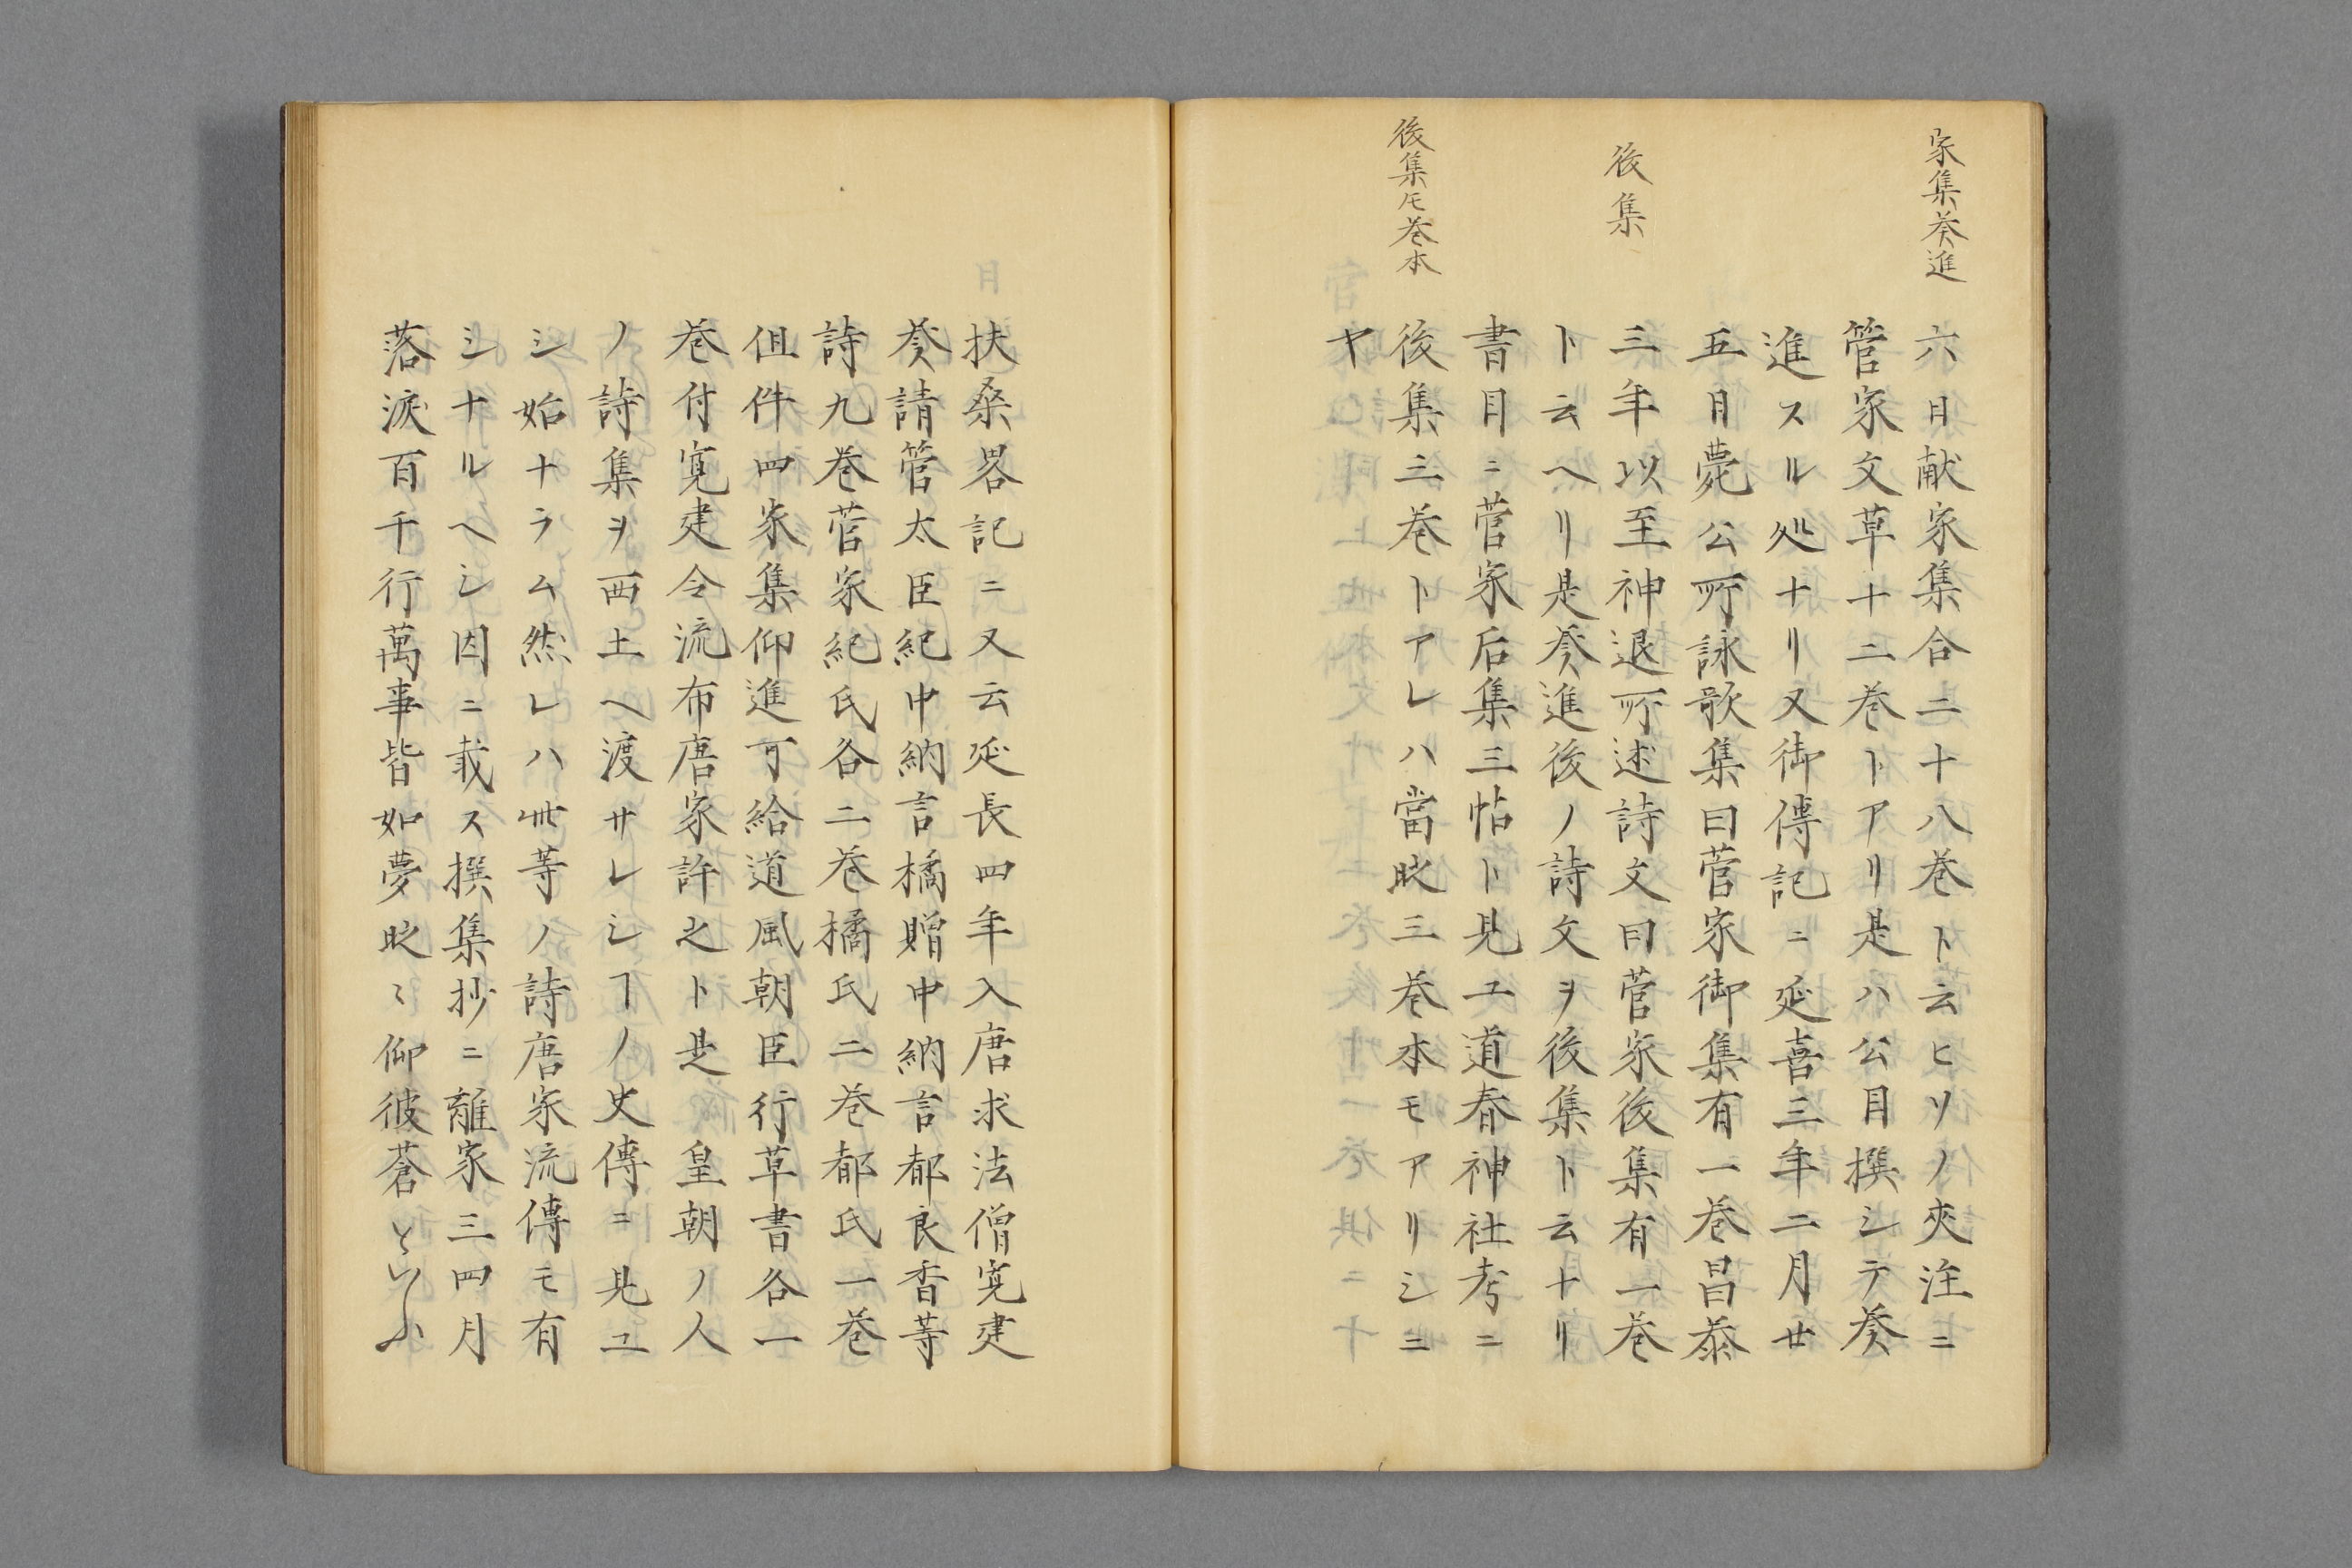 家集奏進
後集
後集モ巻本
六日献家集合二十八巻ト云ヒソノ夾注ニ
管家文草十二巻トアリ是ハ公自撰シテ奏
進スル処ナリ又御傳記ニ延喜三年二月廿
五日薨公所詠歌集曰菅家御集有一巻昌泰
三年以至神退所述詩文曰菅家後集有一巻
ト云ヘリ是奏進後ノ詩文ヲ後集ト云ナリ
書目ニ菅家后集三帖ト見ユ道春神社考ニ
後集三巻トアレハ當時三巻本モアリシニ
ヤ
扶桑畧記ニ又云延長四年入唐求法僧寛建
奏請管太臣紀中納言橘贈中納言都良香等
詩九巻菅家紀氏各二巻橘氏二巻都氏一巻
但件四家集仰進可給道風朝臣行草書各一
巻付寛建令流布唐家許之ト是 皇朝ノ人
ノ詩集ヲ西土ヘ渡サレシヿノ史傳ニ見ユ
シ始ナラム然レハ此等ノ詩唐家流傳モ有
シナルヘシ因ニ載ス撰集抄ニ離家三四月
落涙百千行萬事皆如夢時〻仰彼蒼といふ